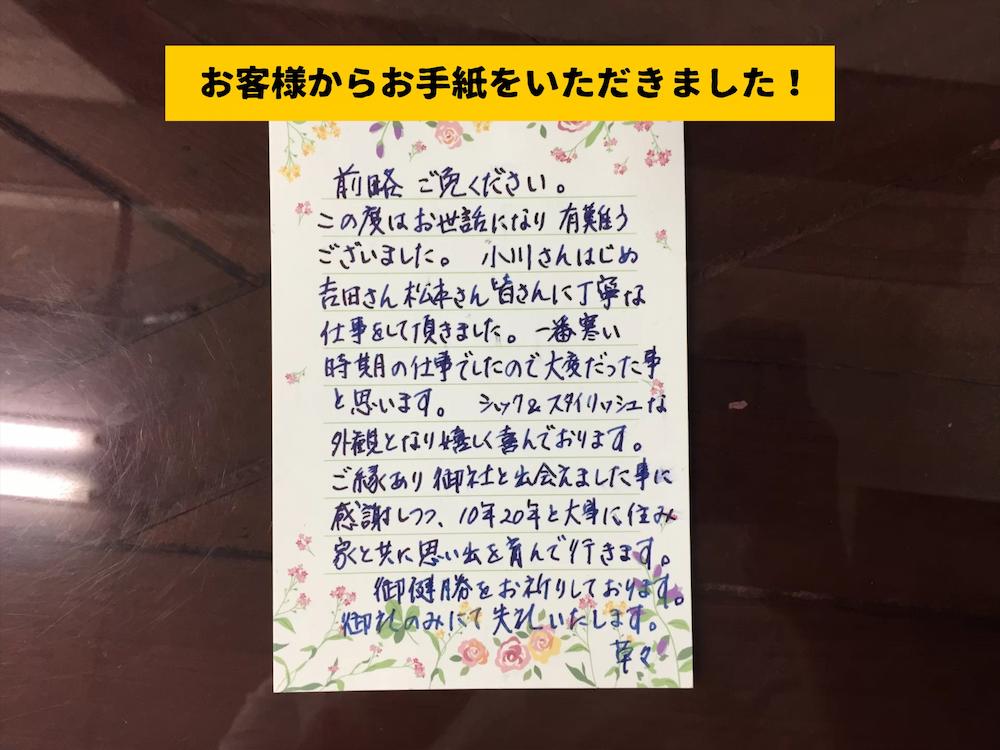 お客様からお手紙をいただきました！
前略 ご免ください。
この度はお世話になり 有難う
ございました。 小川さんはじめ
吉田さん 松本さん 皆さんに丁寧な
仕事をして頂きました。 一番寒い
時期の仕事でしたので大変だった事
と思います。 シック&スタイリッシュな
外観となり嬉しく喜んでおります。
ご縁あり 御社と出会えました事に
感謝しつつ、10年20年と大事に住み
家と共に思い出を育んで行きます。
御健勝をお祈りしております。
御礼のみにて失礼いたします。
草々